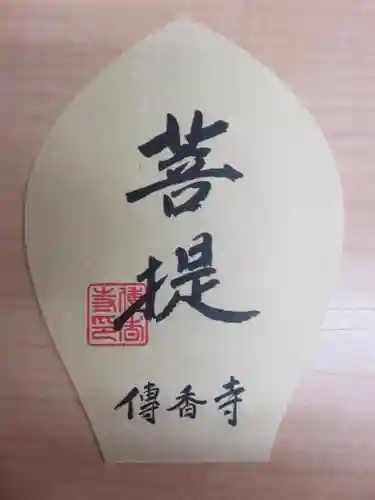 菩
提
傳香寺
傳香
寺印